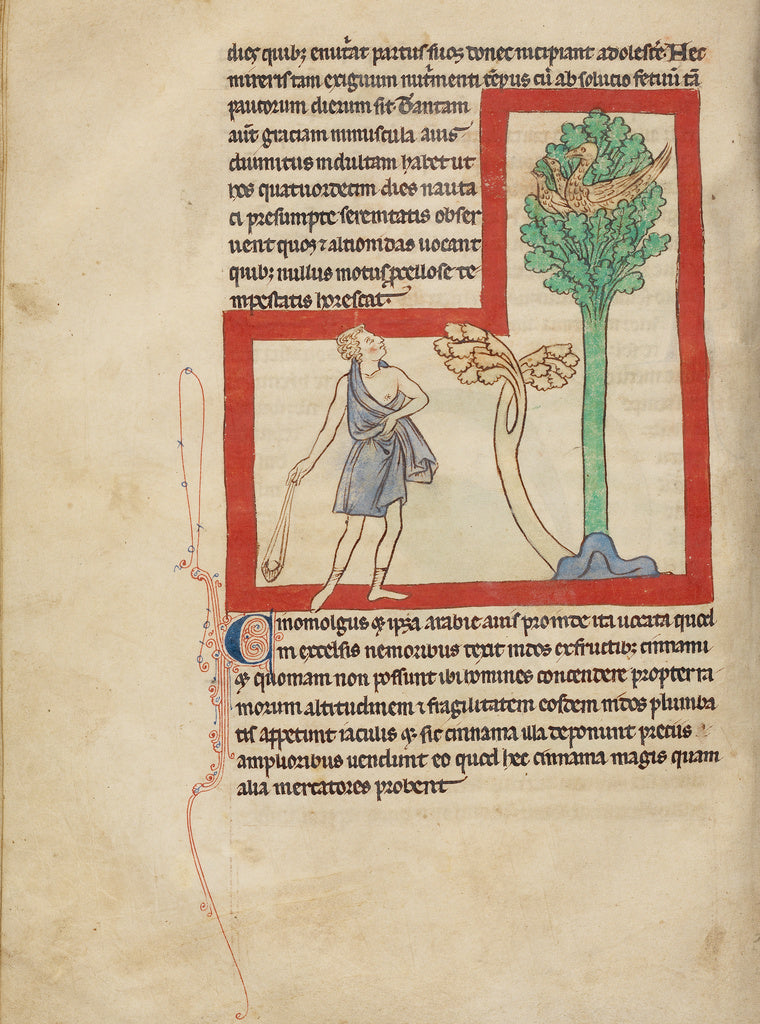 dies quib; enut͛at partus suos donec incipiant adolesc̄e. Hec
mireris tam exiguum nut͛menti tēpus cū absolucio fetuū tā
paucorum dierum sit. Tantam
aut̄ graciam minuscula auis
diuinitus indultam habet ut
hos quatuordecim dies nauta
ci presumpte serenitatis obser
uent quos ⁊ alcionidas uocant
quib; nullus motus ꝓcellose te
mpestatis horescat.
Cinomolgus ⁊ ip̄a arabie auis proinde ita uocata quod
in excelsis nemoribus texit nidos exfructib; cinnami
⁊ quoniam non possunt ibi homines concendere propter ra
morum altitudinem ⁊ fragilitatem eosdem nidos plumba
tis appetunt iaculis ⁊ sic cinnama illa deponunt preciis
amplioribus uendunt eo quod hec cinnama magis quam
alia mercatores probent